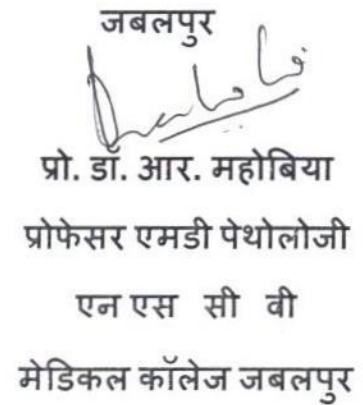 जबलपुर
प्रो. डॉ. आर. महोबिया
प्रोफेसर एमडी पेथोलोजी
एन एस सी वी
मेडिकल कॉलेज जबलपुर